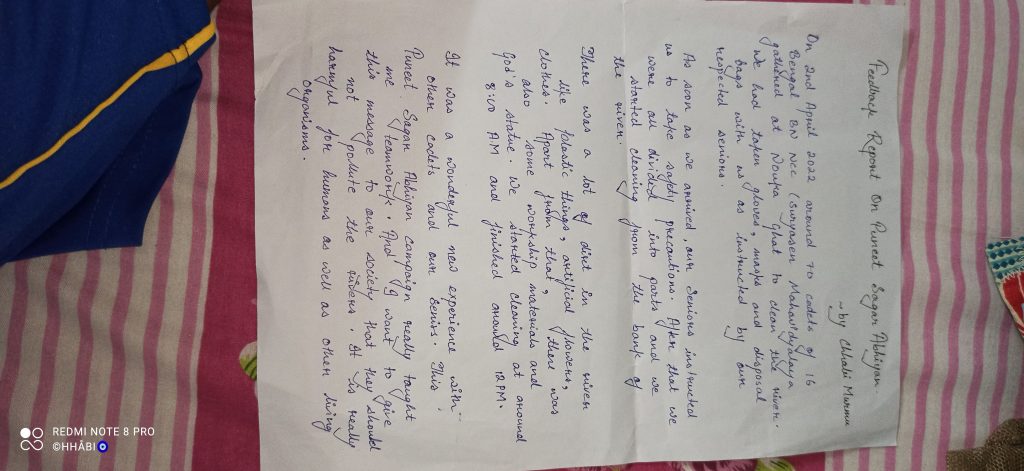 Feedback Report On Puneet Sagar Abhiyan.
~by Chhabi Murmu
On 2nd April 2022 around 70 cadets of 16
Bengal BN NCC (Suryasen Mahavidyalaya
gathered at Nouka Ghat to clean the river.
We had taken gloves, masks and disposal
bags with us as instructed by our
respected seniors.
As soon as we arrived, our seniors instructed
us to take safety precautions. After that we
were all divided into parts and we
started cleaning from the bank of
the river.
There was a lot of dirt in the river
like plastic things, artificial flowers,
clothes. Apart from that, there was
also some workship materials and
God's statue. We started cleaning at around
8:00 AM and finished around 12 PM.
It was a wonderful new experience with
other cadets and our senirs. This
Puneet Sagar Abhiyan campaign really taught
me teamwork. And I want to give
this message to our society that they should
not pollute the rivers. It is really
harmful for humans as well as other living
organisms.
REDMI NOTE 8 PRO
©HHÂBI🧿